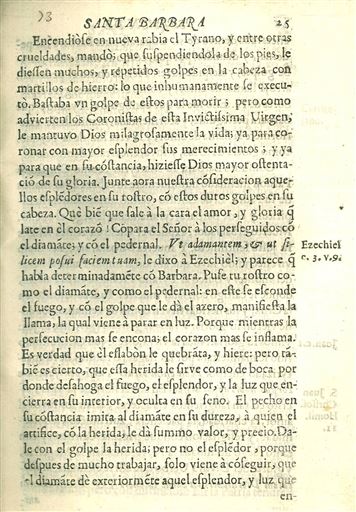 23
SANTA BARBARA
25
Encendióse en nueva rabia el Tyrano, y entre otras
crueldades, mandò; que suspendiendola de los pies, le
diessen muchos, y repetidos golpes en la cabeza con
martillos de hierro: lo que inhumanamente se execu-
tò. Bastaba vn golpe de estos para morir; pero como
advierten los Coronistas de esta Invictissima Uirgen,
le mantuvo Dios milagrosamente la vida; ya para co-
ronar con mayor esplendor sus merecimientos; y ya
para que en su cõstancia, hiziesse Dios mayor ostenta-
ciõ de su gloria. Junte aora nuestra cõsideracion aque-
llos esplẽdores en su rostro, cõ estos duros golpes en su
cabeza. Què biẽ que sale à la cara el amor, y gloria q̃
late en èl corazõ! Cõpara el Señor à los perseguidos cõ
el diamãte; y cõ el pedernal. Vt adamantem, & ut si-
licem posui faciem tuam, le dixo à Ezechiel; y parece q̃
Ezechiel
c. 3. v. 9.
habla determinadamẽte cõ Barbara. Puse tu rostro co-
mo el diamãte, y como el pedernal: en este se esconde
el fuego, y cõ el golpe que le dà el azero, manifiesta la
llama, la qual viene à parar en luz. Porque mientras la
persecucion mas se encona; el corazon mas se inflama.
Es verdad que èl eslabòn le quebrãta, y hiere: pero tã-
biẽ es cierto, que essa herida le sirve como de boca por
donde desahoga el fuego, el esplendor, y la luz que en-
cierra en su interior, y oculta en su seno. El pecho en
su cõstancia imita al diamãte en su dureza, à quien el
artifice, cõ la herida, le dà summo valor, y precio. Da-
le con el golpe la herida; pero no el esplẽdor, porque
despues de mucho trabajar, solo viene à cõseguir, que
el diamãte dè exteriormẽte aquel esplendor, y luz que
en-